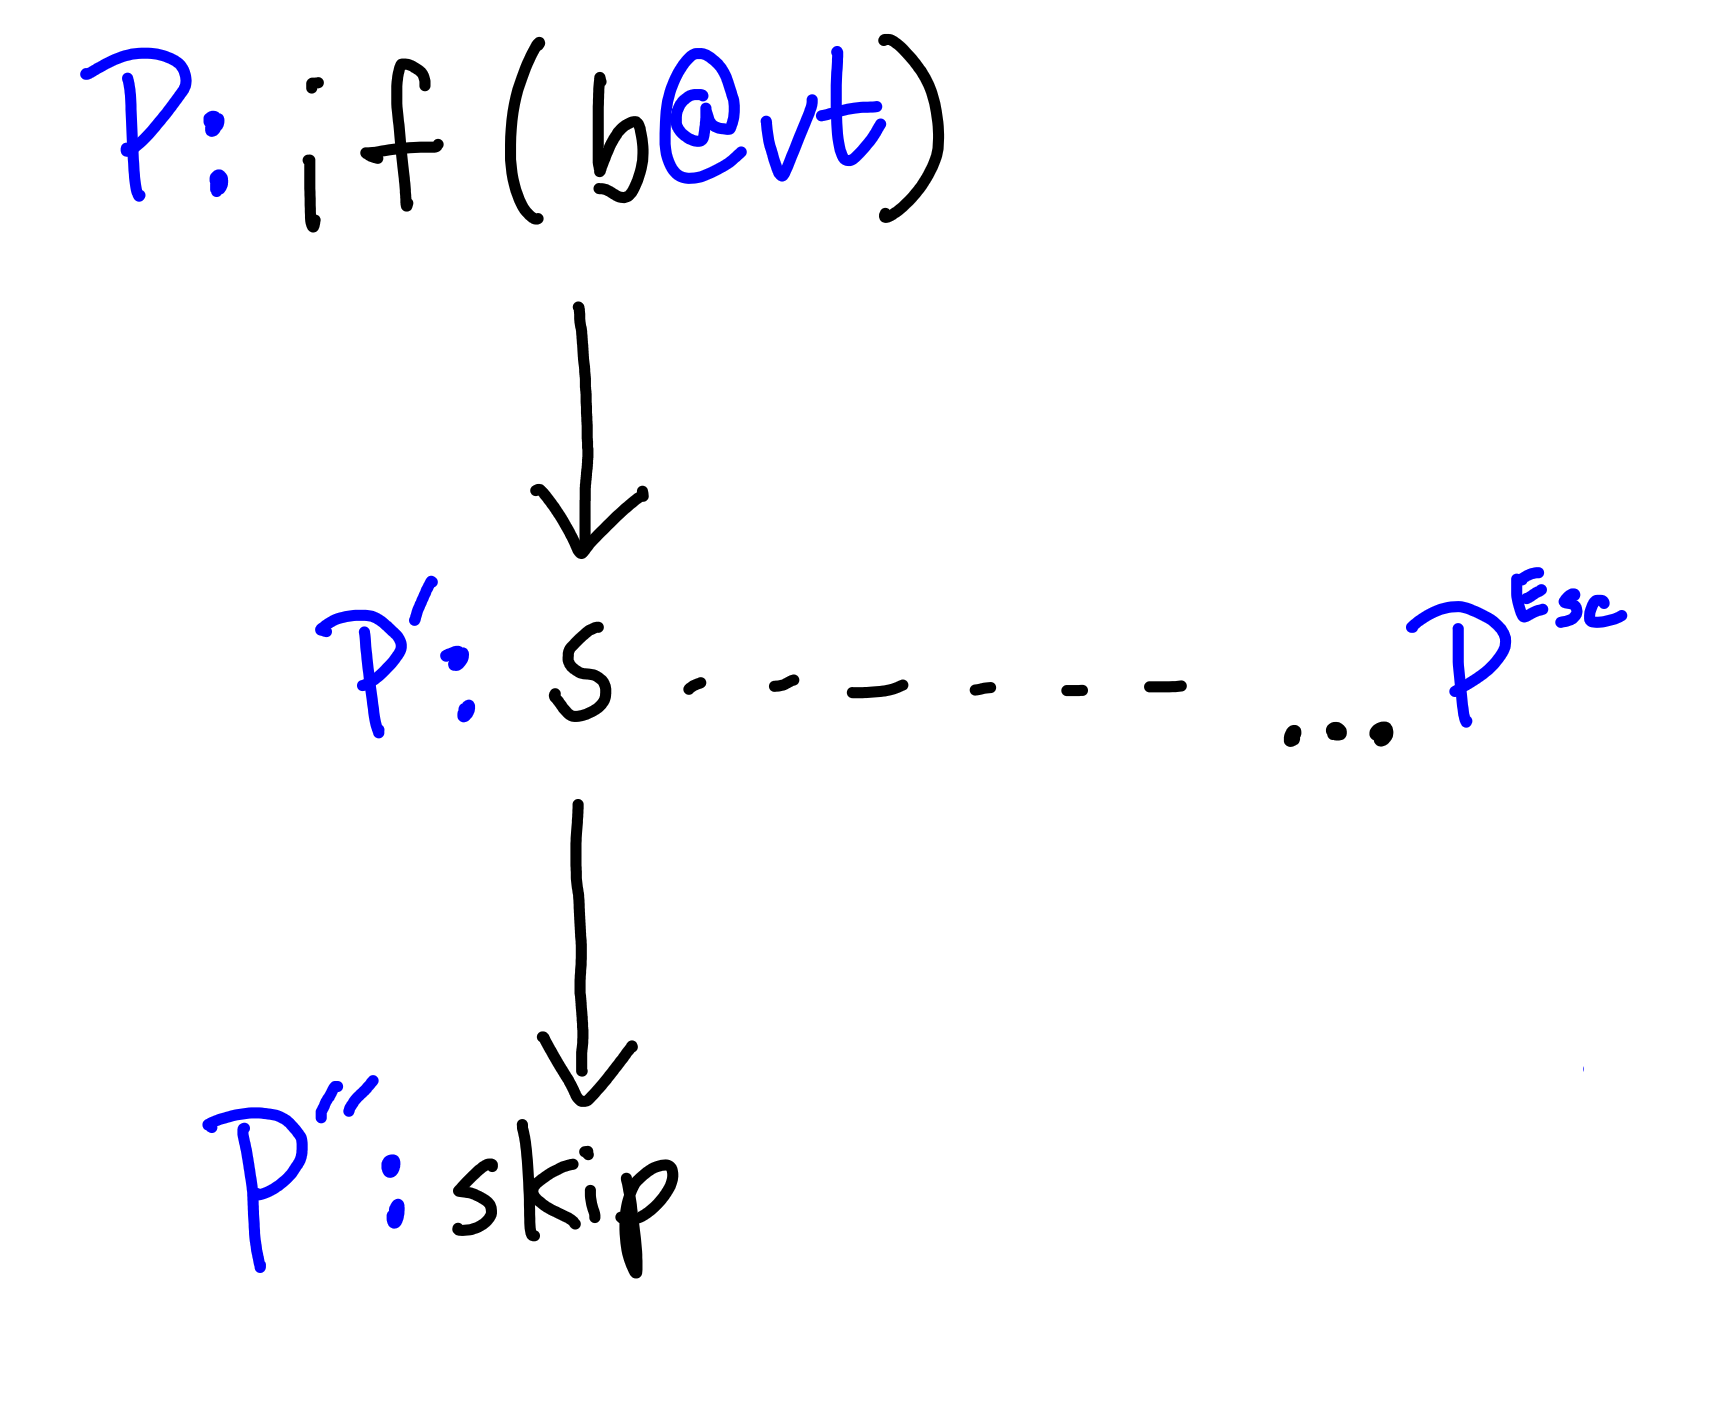 P: if (b@vt)
P': S - - - - - - ... P^Esc
P'': skip